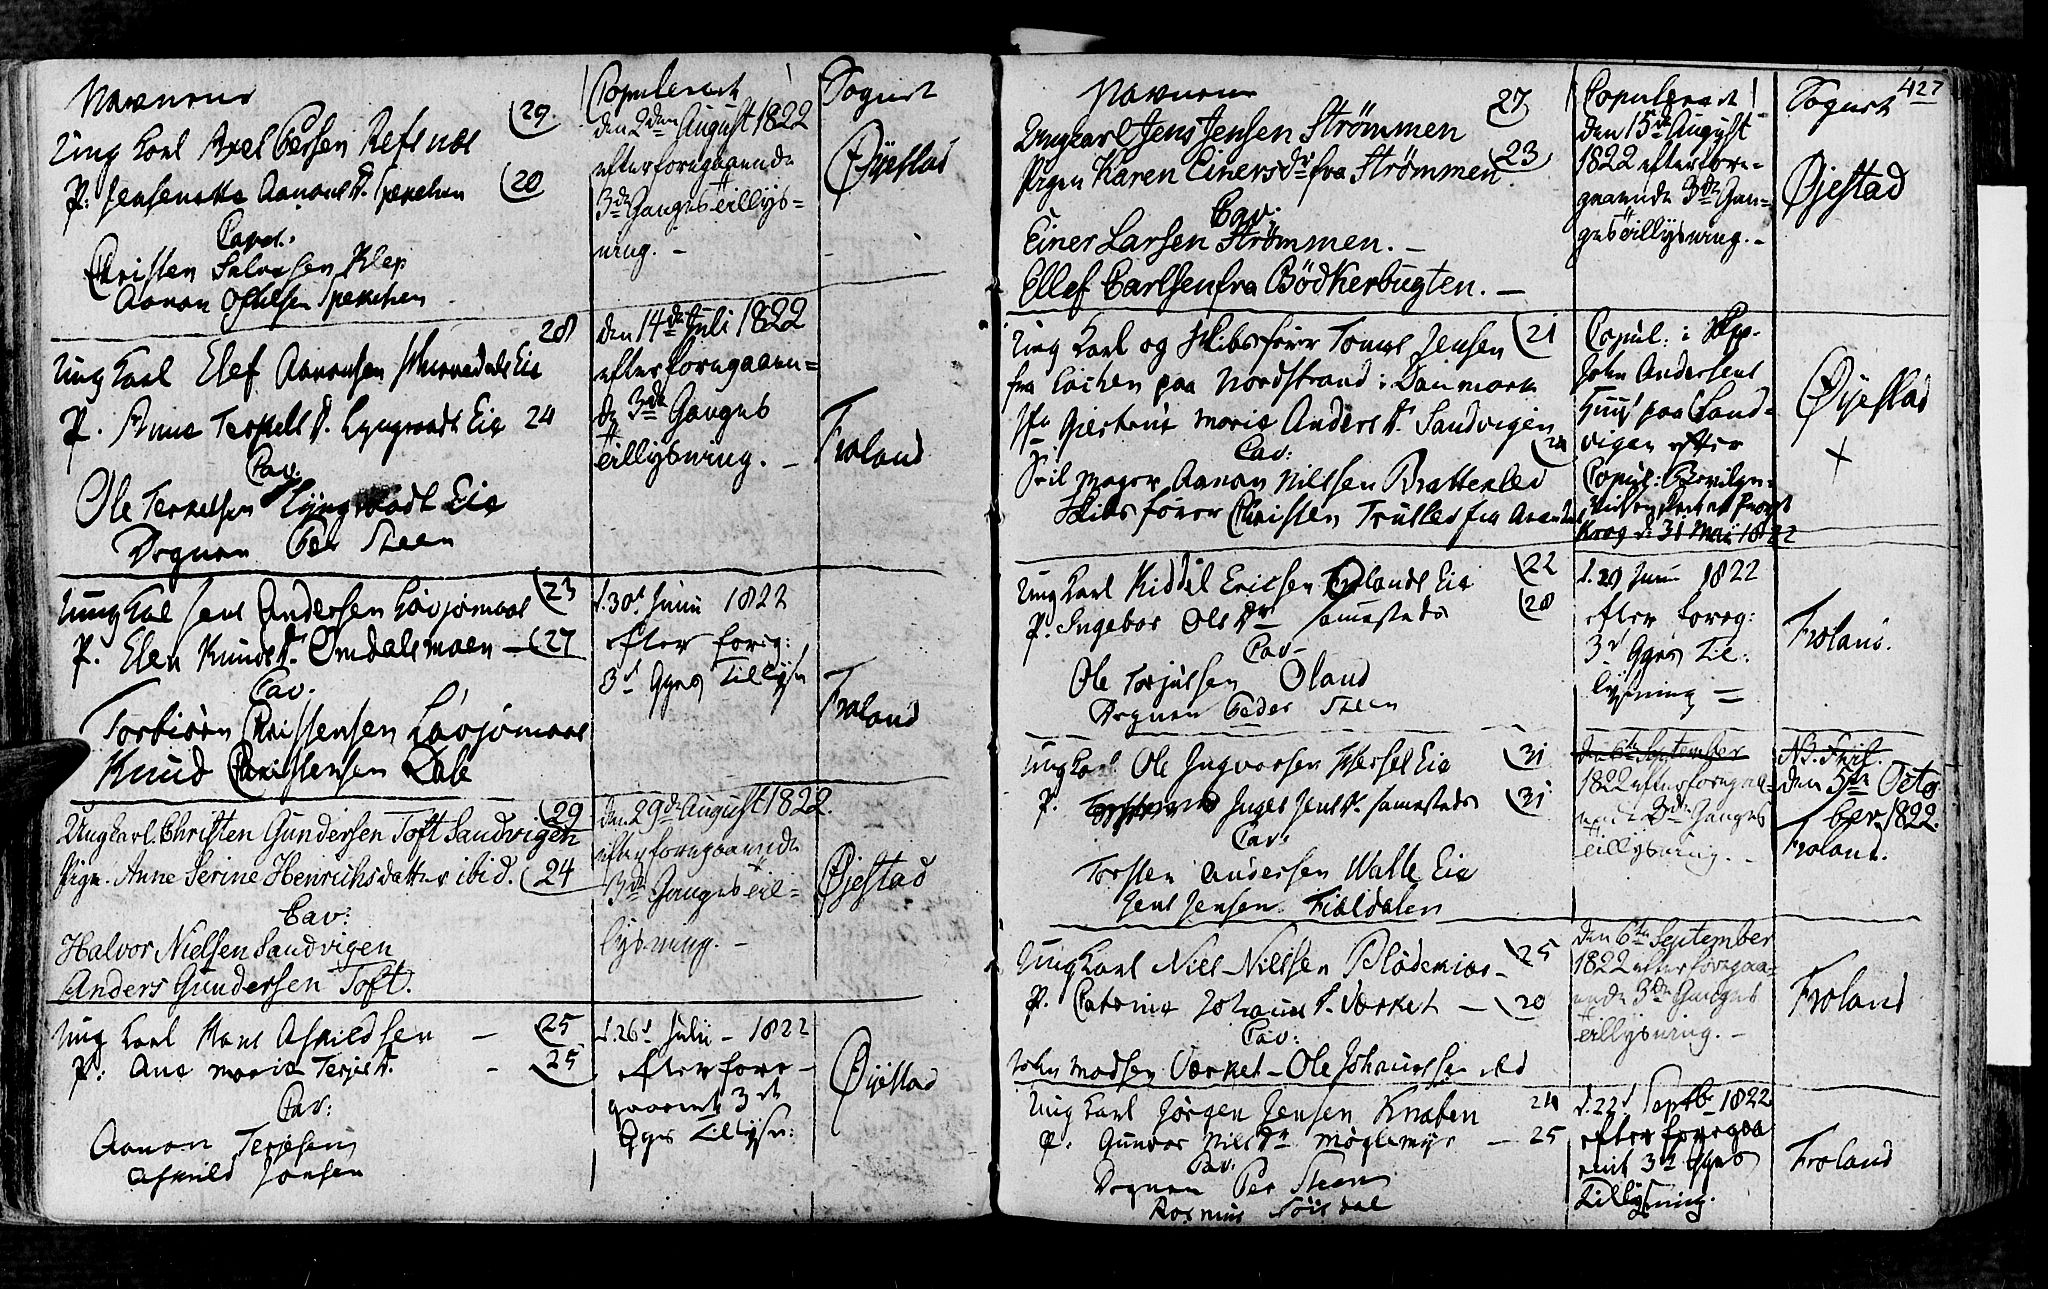 Navnene
Copuleret
Sognet
Ung Karl Axel Persen Refsnæs (29.
den 2den August 1822
efter foregaaende
3de Ganges tillys-
ning. -
Øyestad
P: Aanons D. (20
Cavet:
Christen Salvesen Klep
Aanon
Ung Karl Elef Aanonsen Eie 28
den 14de Juli 1822
efter foregaaen-
de 3de Ganges
tillysning. -
Froland
P. Anne Terkels D. Lyngraadt Eie 24
Cav.
Ole Terkelsen Lyngraadt Eie
Degnen Per Steen
Ung Kal Jens Andersen Løvjomaas (23
d. 30t Junii 1822
efter foreg:
3d Gges Tillysn
Froland
P. Elen Knuds D. Omdalsmoen - (27
Cav.
Torbiörn Christensen Løvjomaas
Knud Christensen Dale
Ungkarl. Christen Gundersen Toft Sandvigen (29
den 29de August 1822.
efter foregaaende
3de Ganges til-
lysning. -
Øjestad
Pige. Anne Serine Henrichsdatter ibid. (24
Cav:
Halvor Nielsen Sandvigen
Anders Gundersen Toft.
Ung Karl Hans Askildsen - (25
d. 26d Julii - 1822
efter fore-
gaaende 3de
Gges Tillysn:
Øyestad
P: Ane Marie Terjes D. - (25
Cav:
Aanon Terjesen
Askild Jonsen
427
Navnene
Copuleret
Sognet
Ungkarl Jens Jensen Strømmen 27
den 15de August
1822 efter fore-
gaaende 3de Gan-
ges tillysning. -
Øjestad
Pigen Karen Einers Dr fra Strømmen. (23
Cav:
Einer Larsen Strømmen. -
Ellef Carlsen fra Bödkerbugten. -
Ung Karl og Skibsfører Tomas Jensen (21
Copul: i
John Andersens
Huus paa Sand-
vigen efter
Copul: Bevilgn-
Krog d: 31 Maii 1822
Øyestad
+
fra paa Nordstrand i Danmark
Marie Anders D. Sandvigen
Cav:
Seilmager Aanon Nilssen Brattekled
Skibsfører Christen Trulles fra Arendal
Ung Karl Kiddil Ericsen Ølands Eie (22
Junii 1822
efter foreg:
3d Gges Til:
lysning -
Froland.
P. Ingebor Ols Dr sammesteds (28
Cav-
Ole Torjulsen Øland
Degnen Peder Steen
Ung Karl Ole Ingvorsen Eie (31
den 6te September
1822 efter foregaa-
ende 3de Ganges
tillysning. -
N3. Skil.
den 5te Octo
ber 1822.
Froland.
P. Inger Jens D. sammesteds (31
Cav.
Torsten Andersen Walle Eie
Jens Jensen Fialdalen
Ung Karl Niels Nilssen Blödekiær - (25
den 6te September
1822 efter foregaa-
ende 3de Ganges
tillysning. -
Froland
P. Catrine Johannes D. Værket - (20
Cav:
John Madsen Værket - Ole Johannessen
Ung Karl Jörgen Jensen Knaben 24
d. 22d Septb 1822
efter foregaa
ende 3de Gges
Tillysning.
Froland
P. Gunvor Nils Dr Møglemyr - 25
Cav:
Degnen Per Steen
Rasmus